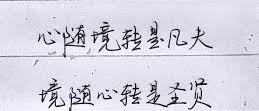 心随境转是凡夫
境随心转是圣贤